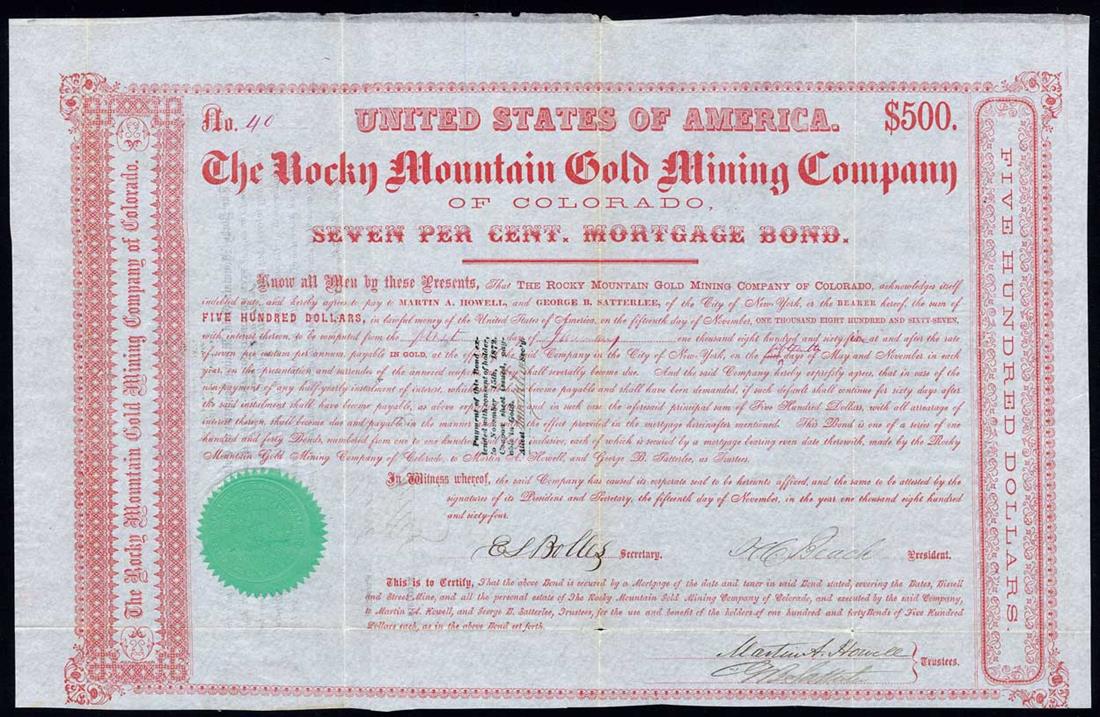 No. 40
UNITED STATES OF AMERICA.
$500.
The Rocky Mountain Gold Mining Company
OF COLORADO,
SEVEN PER CENT. MORTGAGE BOND.
Know all Men by these Presents, That THE ROCKY MOUNTAIN GOLD MINING COMPANY OF COLORADO, acknowledges itself
indebted unto, and hereby agrees to pay to MARTIN A. HOWELL, and GEORGE B. SATTERLEE, of the City of New York, or the BEARER hereof, the sum of
FIVE HUNDRED DOLLARS, in lawful money of the United States of America, on the fifteenth day of November, ONE THOUSAND EIGHT HUNDRED AND SIXTY-SEVEN,
with interest thereon, to be computed from the first day of one thousand eight hundred and sixty at and after the rate
of seven per centum per annum, payable IN GOLD, at the of said Company in the City of New-York, on the days of May and November in each
year, on the presentation and surrender of the annexed coupons shall severally become due. And the said Company hereby expressly agrees, that in case of the
non-payment of any half-yearly instalment of interest, which become payable and shall have been demanded, if such default shall continue for sixty days after
the said instalment shall have become payable, as above and in such case the aforesaid principal sum of Five Hundred Dollars, with all arrearage of
interest thereon, shall become due and payable in the manner the effect provided in the mortgage hereinafter mentioned. This Bond is one of a series of one
hundred and forty Bonds, numbered from one to one hundred inclusive, each of which is secured by a mortgage bearing even date therewith, made by the Rocky
Mountain Gold Mining Company of Colorado, to Martin A. Howell, and George B. Satterlee, as Trustees.
Payment of this Bond ex-
tended with consent of holder,
to November 15th, 1872.
Coupon sheet issued, pay-
able in Gold.
Attest Sec'y
In Witness whereof, the said Company has caused its corporate seal to be hereunto affixed, and the same to be attested by the
signatures of its President and Secretary, the fifteenth day of November, in the year one thousand eight hundred
and sixty-four.
E S Bolles Secretary. H C Beach President.
This is to Certify, That the above Bond is secured by a Mortgage of the date and tenor in said Bond stated, covering the Bates, Bissell
and Street Mine, and all the personal estate of The Rocky Mountain Gold Mining Company of Colorado, and executed by the said Company,
to Martin A. Howell, and George B. Satterlee, Trustees, for the use and benefit of the holders of one hundred and forty Bonds of Five Hundred
Dollars each, as in the above Bond set forth.
Martin A. Howell
Trustees.
The Rocky Mountain Gold Mining Company of Colorado.
FIVE HUNDRED DOLLARS.